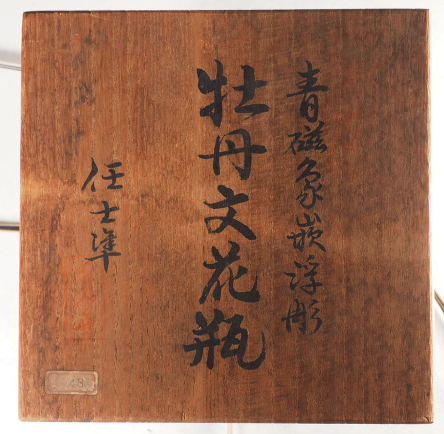 青磁象嵌浮彫
牡丹文花瓶
任士準
48